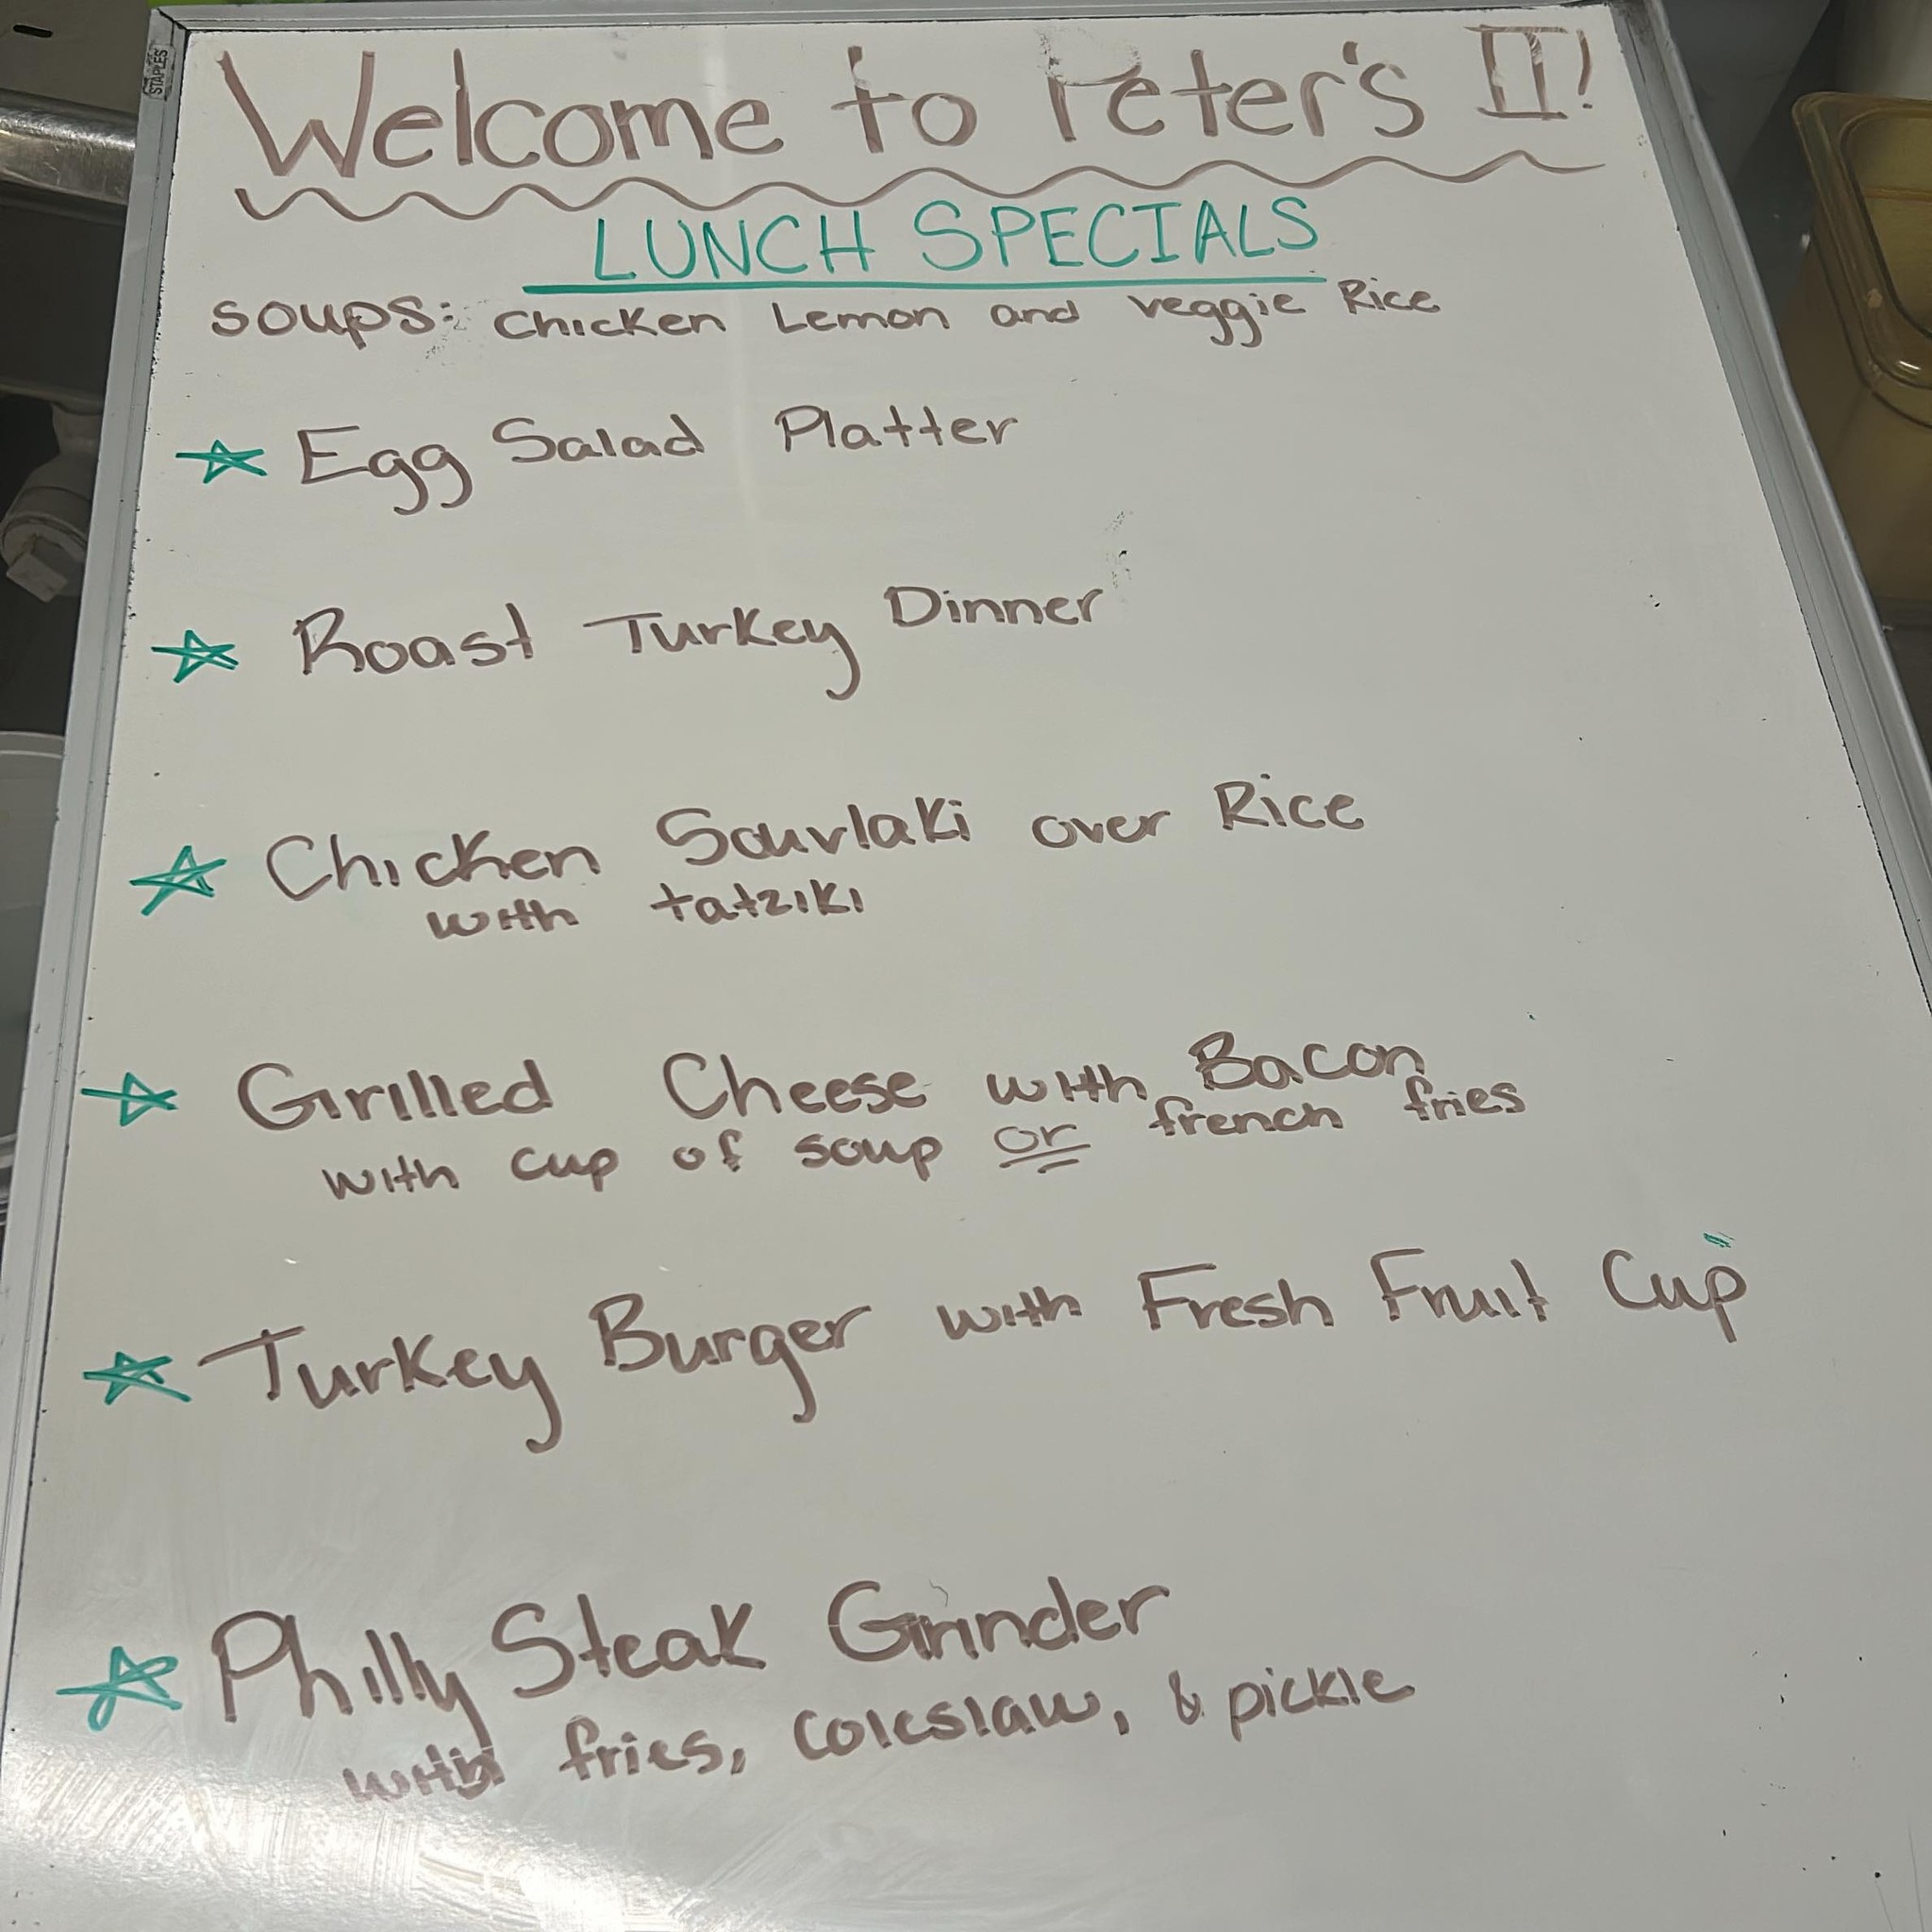 STAPLES
Welcome to Peter's II!
LUNCH SPECIALS
SOUPS: Chicken Lemon and veggie Rice
Egg Salad Platter
Roast Turkey Dinner
Chicken Souvlaki over Rice
with tatziki
Grilled Cheese with Bacon
with cup of soup or french fries
Turkey Burger with Fresh Fruit Cup
Philly Steak Grinder
with fries, coleslaw, & pickle